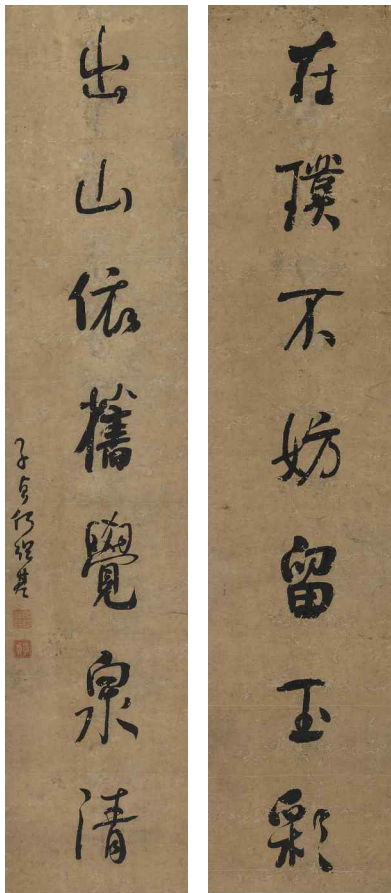 在璞不妨留玉彩
出山依舊覺泉清
子貞何紹基